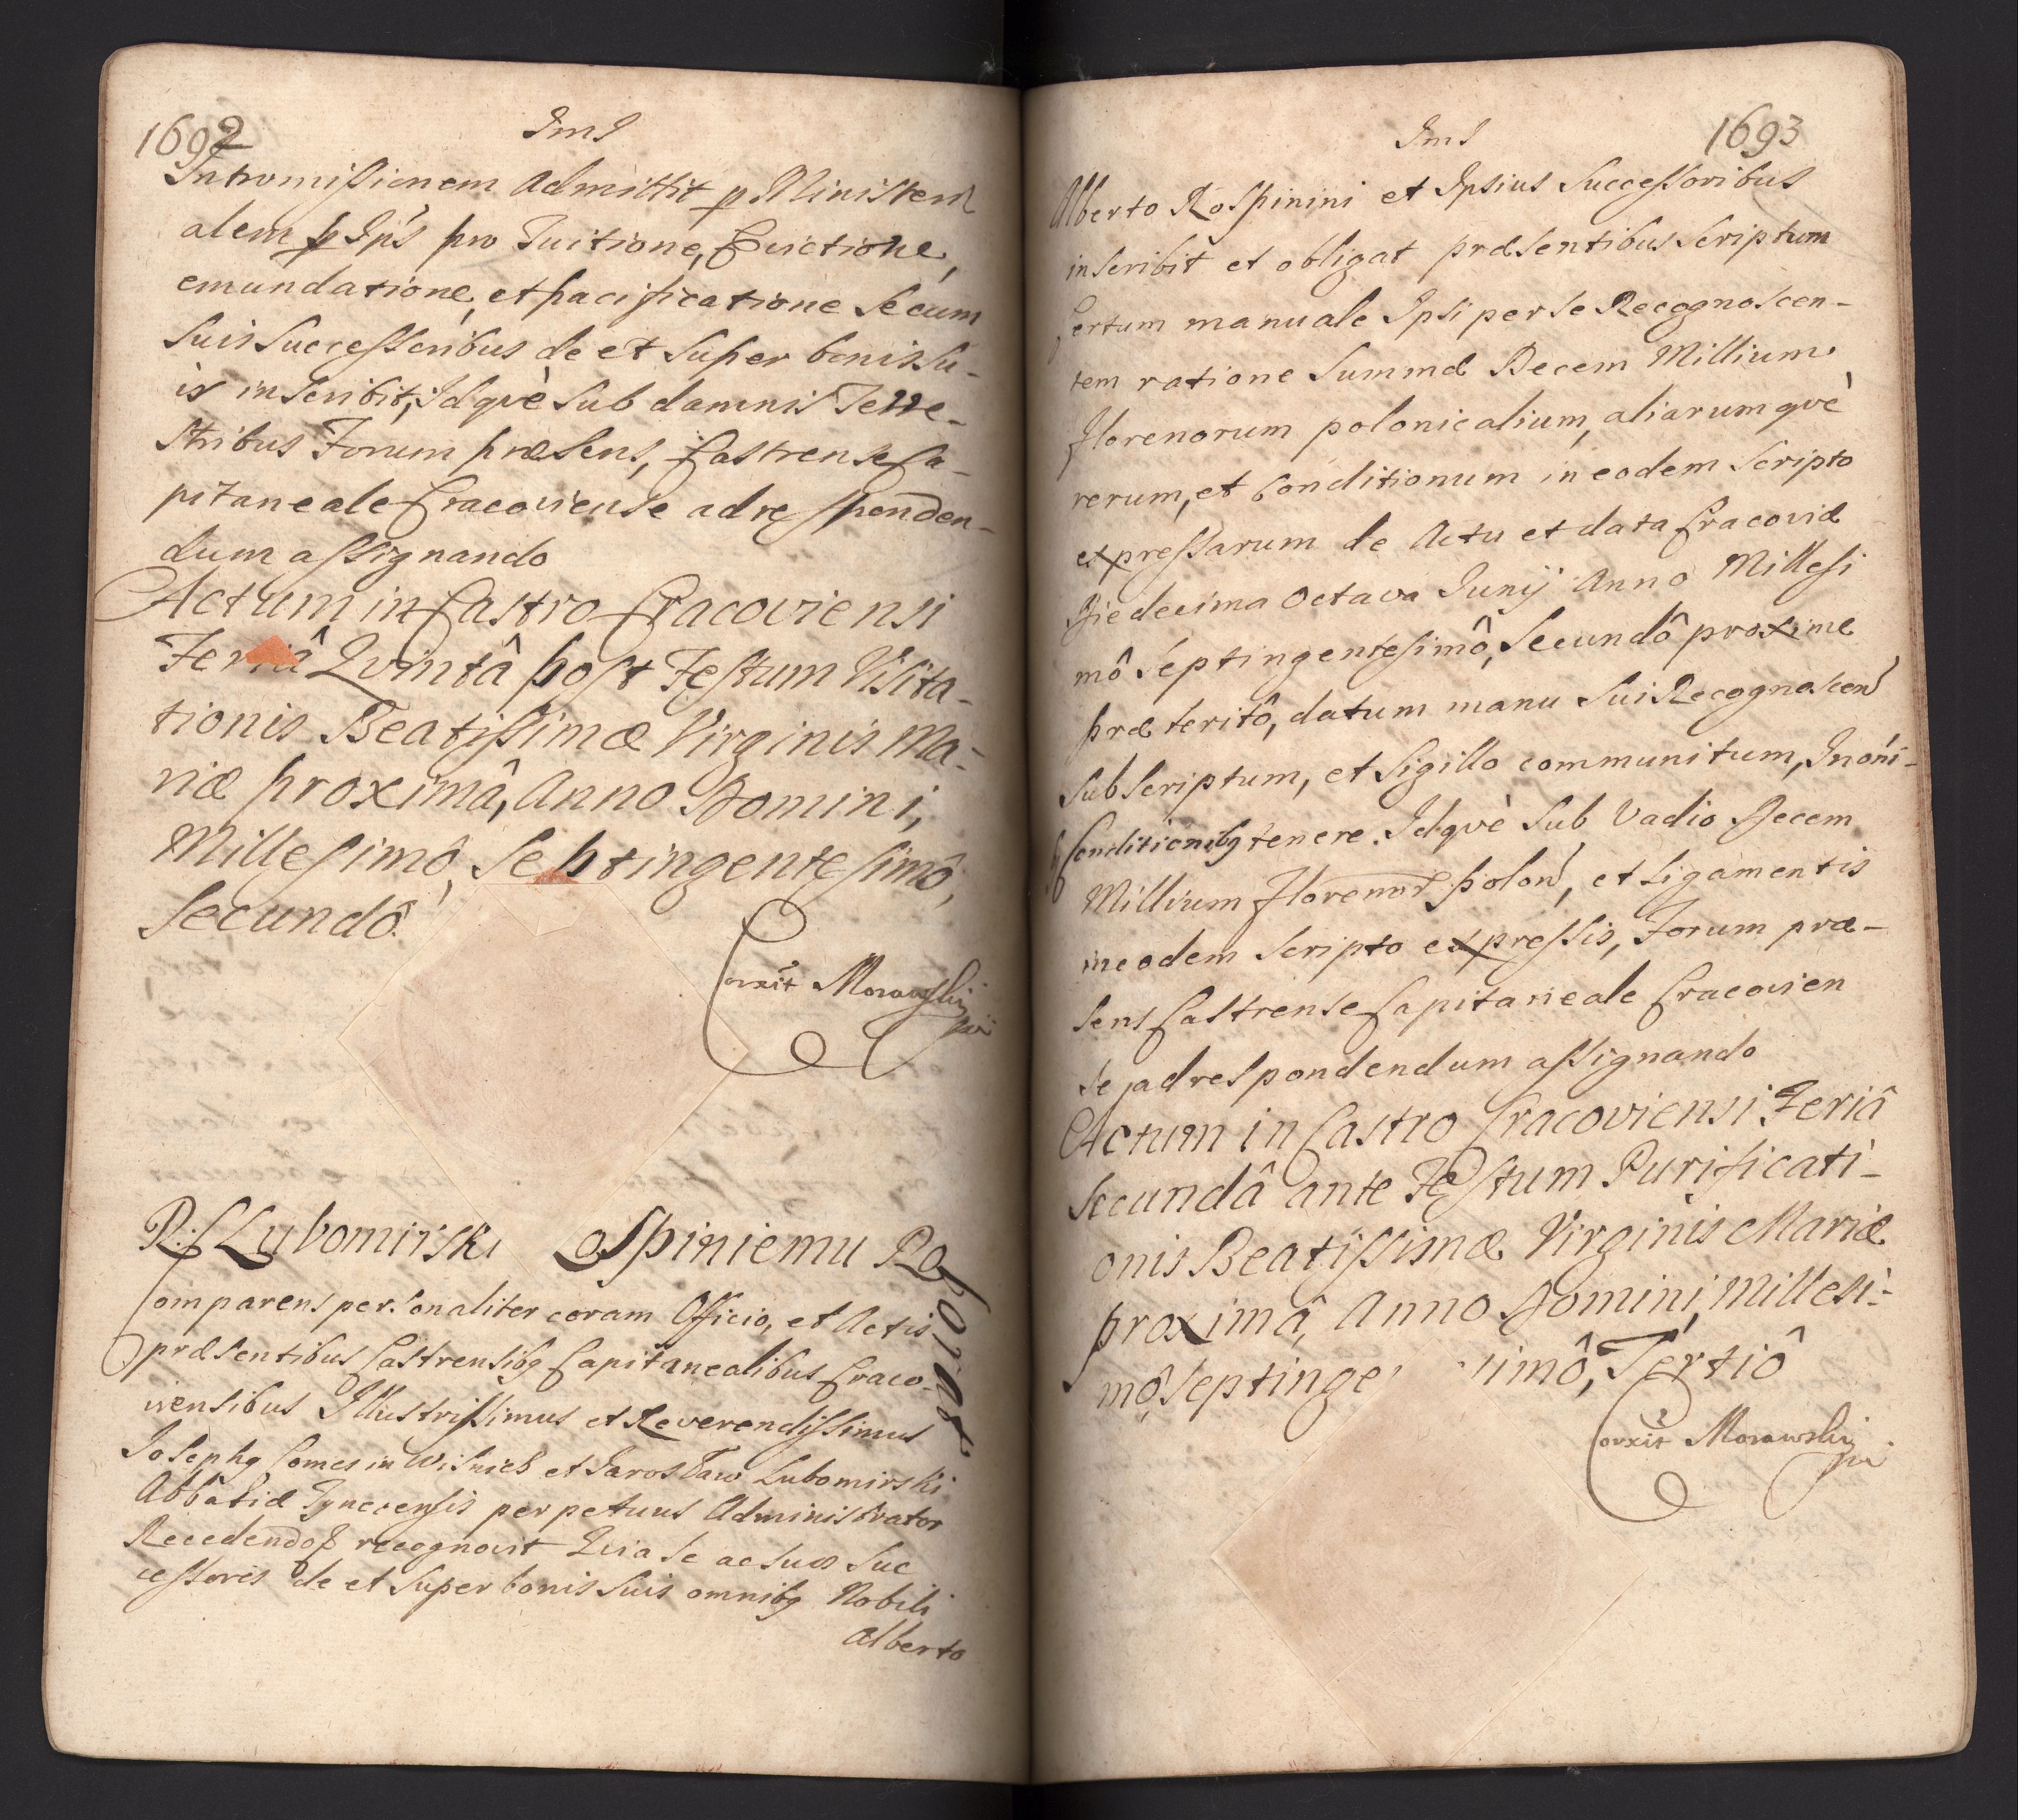 1692
Intromissionem Admittit p Ministeri
alem q Ips pro Tuitione, Evictione,
emundatione, et pacificatione se cum
suis Successoribus de et super bonis su-
is inscribit, Idqvè sub damnis Terre-
stribus Forum præsens, Castrense Ca-
pitaneale Cracoviense ad responden-
dum assignando
Actum in Castro Cracoviensi
Feriâ Qvintâ post Festum Visita-
tionis Beatissimæ Virginis Ma-
riæ proximâ, Anno Domini,
Millesimô, Septingentesimô,
Secundô.
Corxit Morawski
R: C Lubomirski Rospiniemu Roborat
Comparens personaliter coram Officio, et Actis
præsentibus Castrensibq Capitanealibus Craco-
viensibus Illustrissimus et Reverendissimus
Josephq Comes in Wisnicz et Jarosław Lubomirski
Abbatiæ Tynecensis perpetuus Administrator
Recedendoq recognovit Qvia se ac suos Suc
cessores de et super bonis suis omnibq Nobili
Alberto
1693
Alberto Rospinini et Ipsius Successoribus
inscribit et obligat præsentibus Scriptum
certum manuale Ipsi per se Recognoscen-
tem ratione Summæ Decem Millium
florenorum polonicalium, aliarumqvè
rerum, et conditionum in eodem Scripto
expressarum de Actu et data Cracoviæ
Die decima Octava Junij Anno Millesi
mô Septingentesimô, Secundô proxime
præteritô, datum manu sui Recognoscen
subscriptum, et Sigillo communitum, In oni-
q Conditionibq tenere. Idqvè sub Vadio Decem
Millium Florenor polon, et Ligamentis
in eodem Scripto expressis, Forum præ-
sens Castrense Capitaneale Cracovien
se, ad respondendum assignando
Actum in Castro Cracoviensi Feriâ
Secundâ ante Festum Purificati-
onis Beatissimæ Virginis Mariæ
proximâ, Anno Domini, Millesi-
mô, Septingentesimô, Tertiô
Corxit Morawski